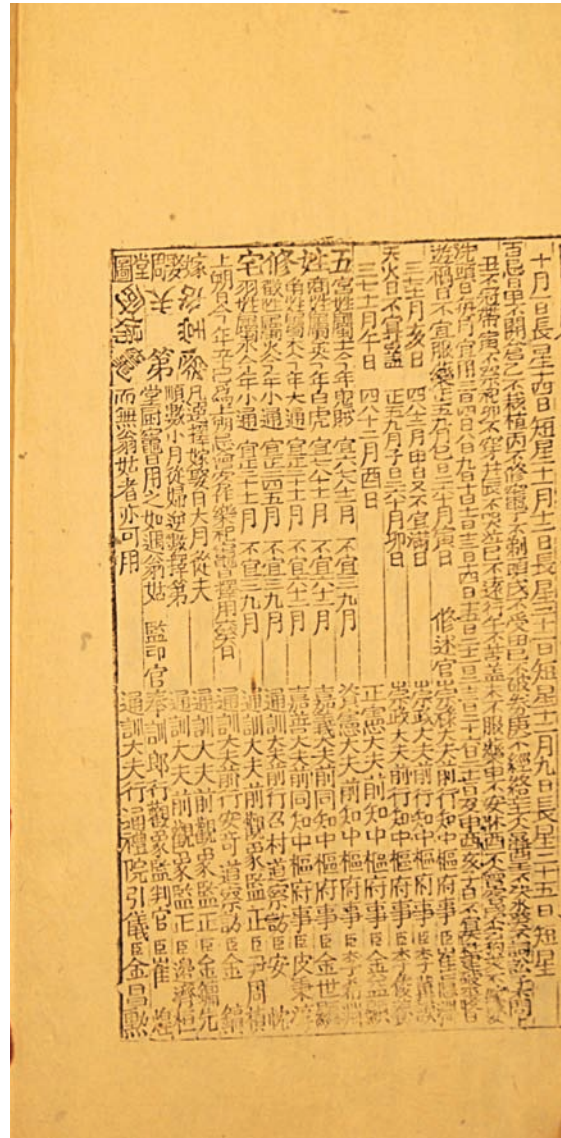 十月一日長星十四日短星十一月十二日長星二十二日短星十二月九日長星二十五日短星
百忌日甲不開倉乙不栽植丙不修竈丁不剃頭戊不受田己不破券庚不經絡辛不合醬壬不決水癸不詞訟子不問卜
丑不冠帶寅不祭祀卯不穿井辰不哭泣巳不遠行午不苫盖未不服藥申不安牀酉不會客戌不
洗頭日每月宜用三四日八日九日十日
遊禍日不宜服藥正五九月巳日二六十月寅日
三七十一月亥日 四八十二月申日又不宜滿日
天火日不宜苫蓋 正五九月子日二六十月卯日
三七十一月午日 四八十二月酉日
五 宮姓屬土今年鬼賊 宜六十二月 不宜三九月
姓 商姓屬金今年白虎 宜二八十一月 不宜六十二月
角姓屬木今年大通 宜正二十一月 不宜六十二月
修 徵姓屬火今年小通 宜正二四五月 不宜三九月
宅 羽姓屬水今年小通 宜正七十一月 不宜三九月
上朔日今年辛巳爲上朔忌宴會作樂祀竈日擇用癸日
嫁娶周堂圖
夫 姑 堂 翁 第 竈 婦 廚
凡選擇嫁娶日大月從夫
順數小月從婦逆數擇第
堂厨竈日用之如遇翁姑
而無翁姑者亦可用
修述官
崇祿大夫前行知中樞府事臣崔
崇政大夫前行知中樞府事臣李
崇政大夫前行知中樞府事臣李俊
正憲大夫前知中樞府事臣金
資憲大夫前知中樞府事臣李希
嘉義大夫前同知中樞府事臣金世
嘉善大夫前同知中樞府事臣皮秉
通訓大夫前行召村道察訪臣安
通訓大夫前觀象監正臣尹周
通訓大夫前行安奇道察訪臣金
通訓大夫前觀象監正臣金鏞先
通訓大夫前觀象監正臣邊濟桓
監印官
奉訓郞行觀象監判官臣崔
通訓大夫行通禮院引儀臣金昌勲